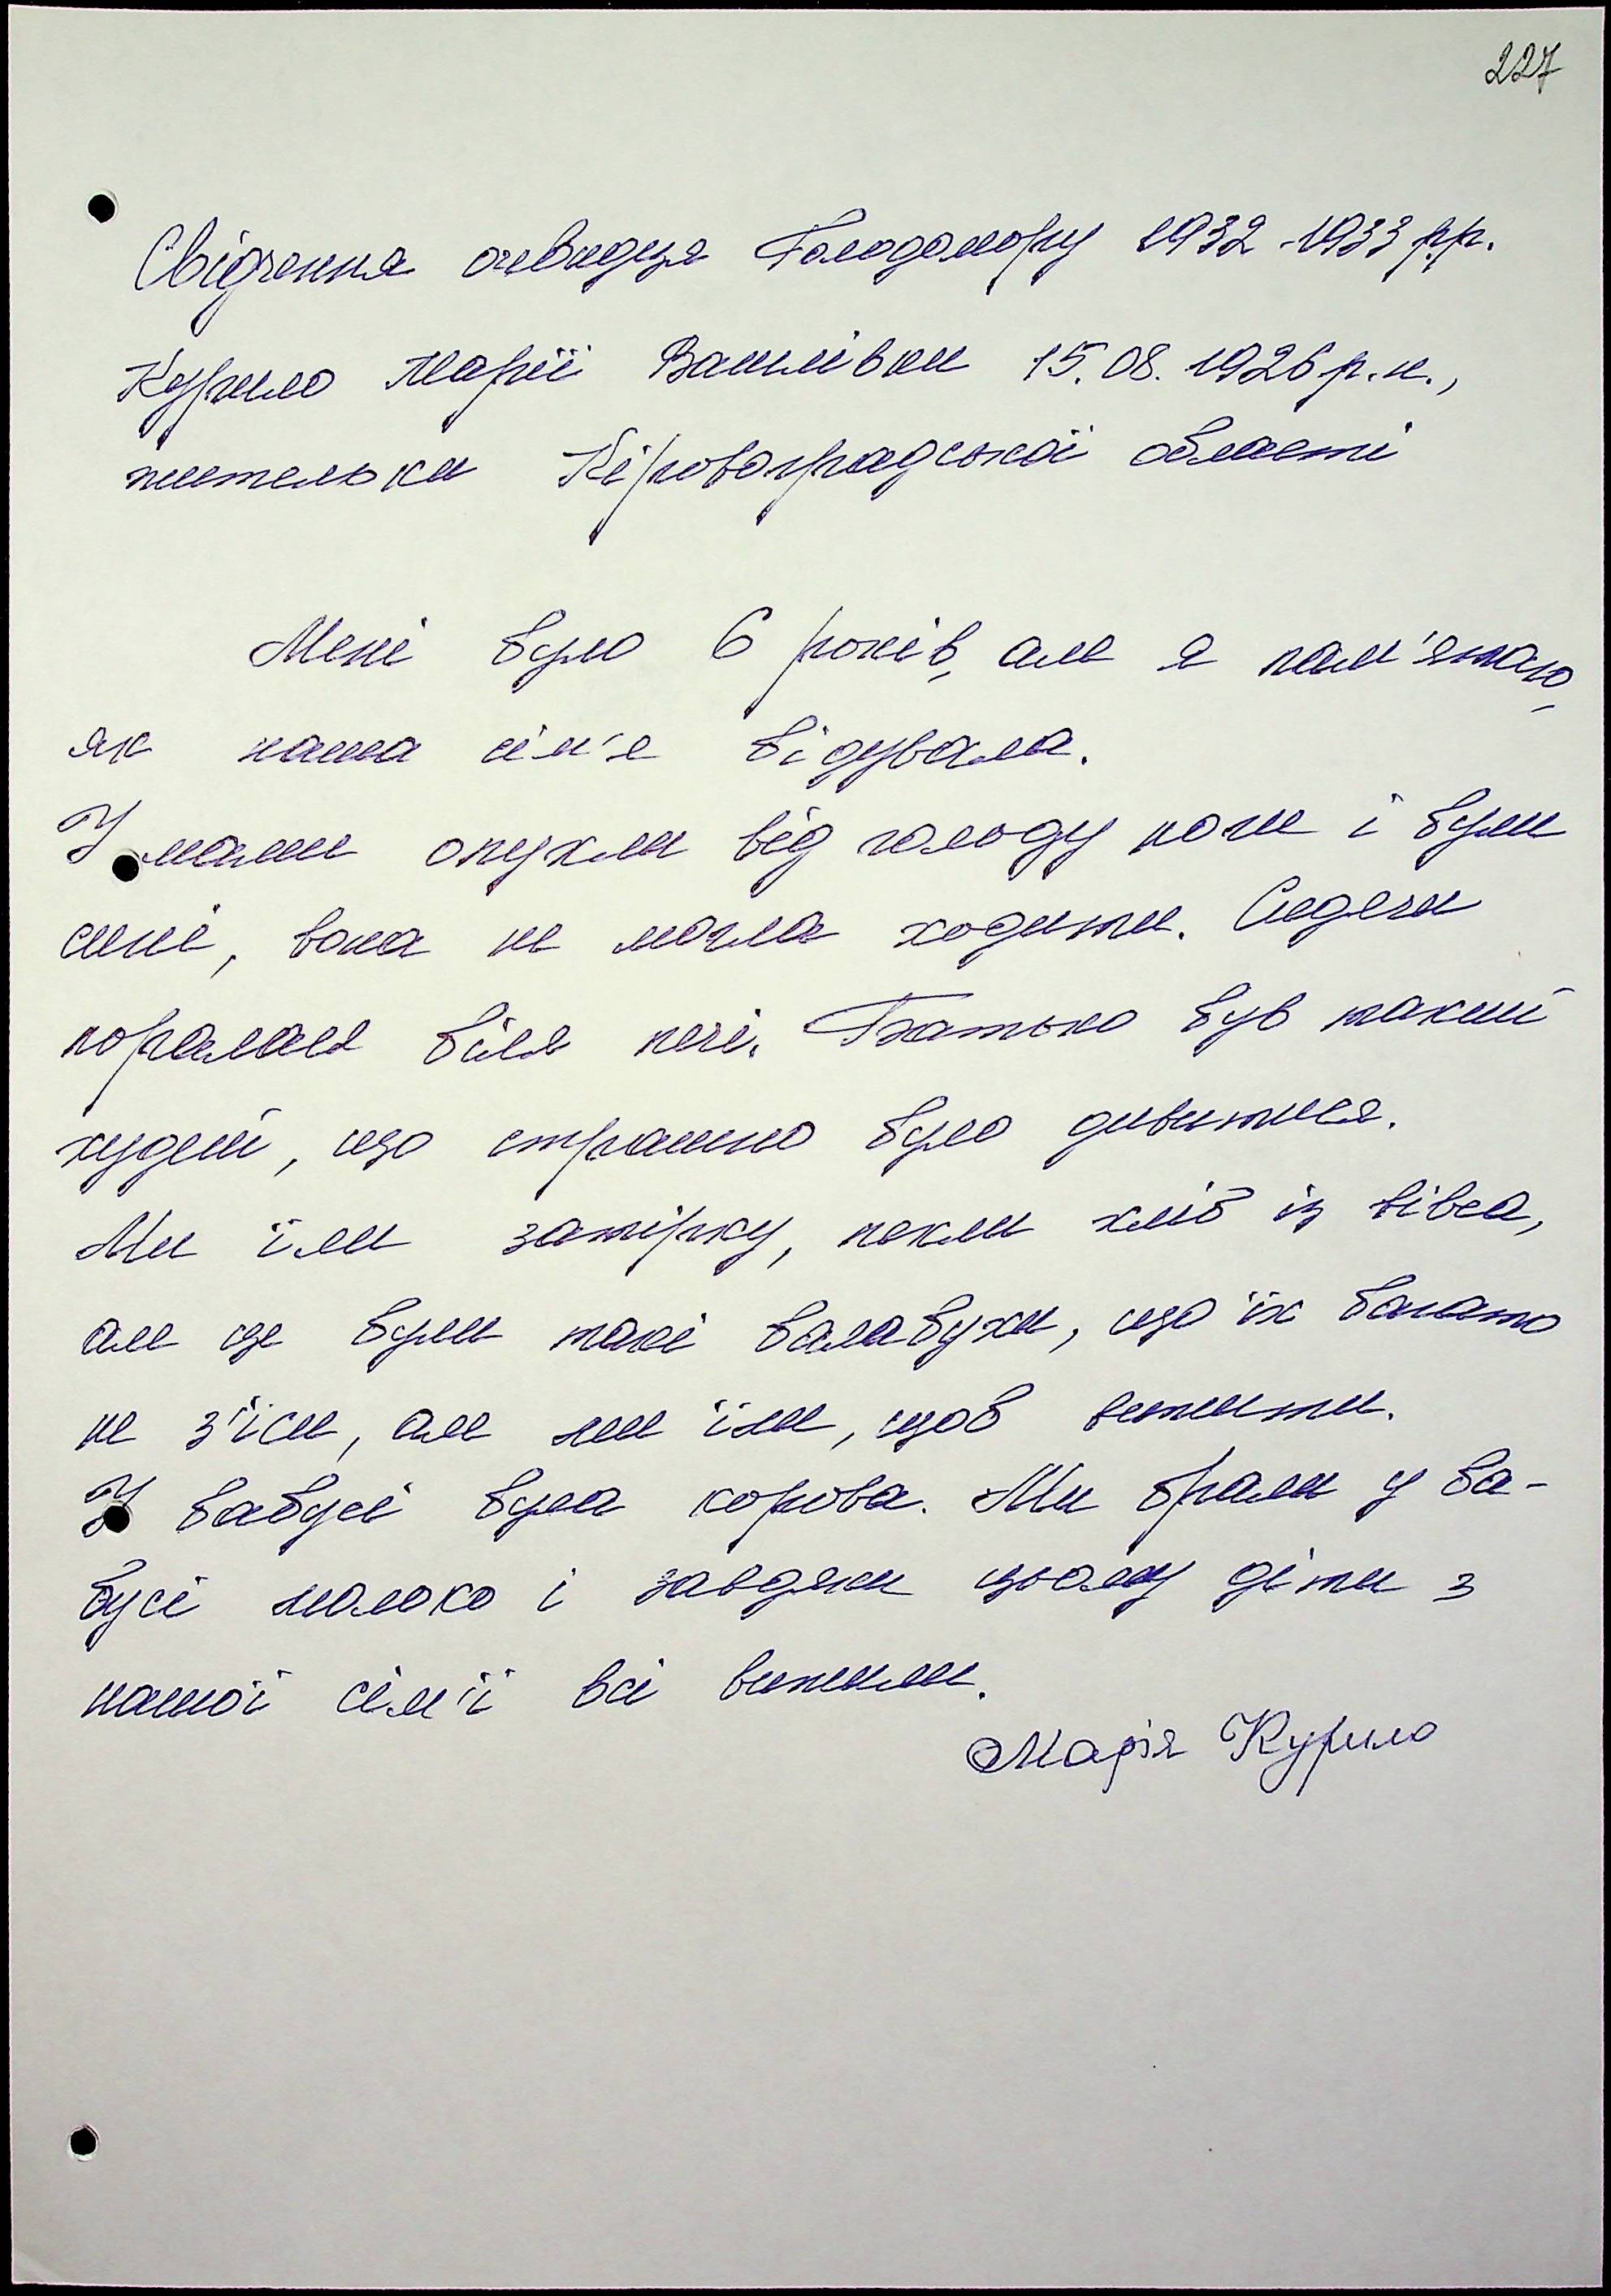 227
Свідчення очевидця Голодомору 1932-1933 рр.
Курило Марії Василівни 15.08.1926 р.н.,
жительки Кіровоградської області
Мені було 6 років, але я пам'ятаю,
як наша сім'я бідувала.
У мами опухли від голоду ноги і були
сині, вона не могла ходити. Сидячи
поралася біля печі. Батько був такий
худий, що страшно було дивитися.
Ми їли затірку, пекли хліб із вівса,
але це були такі балабухи, що їх багато
не з'їси, але ми їли, щоб вижити.
У бабусі була корова. Ми брали у ба-
бусі молоко і завдяки цьому діти з
нашої сім'ї всі вижили.
Марія Курило